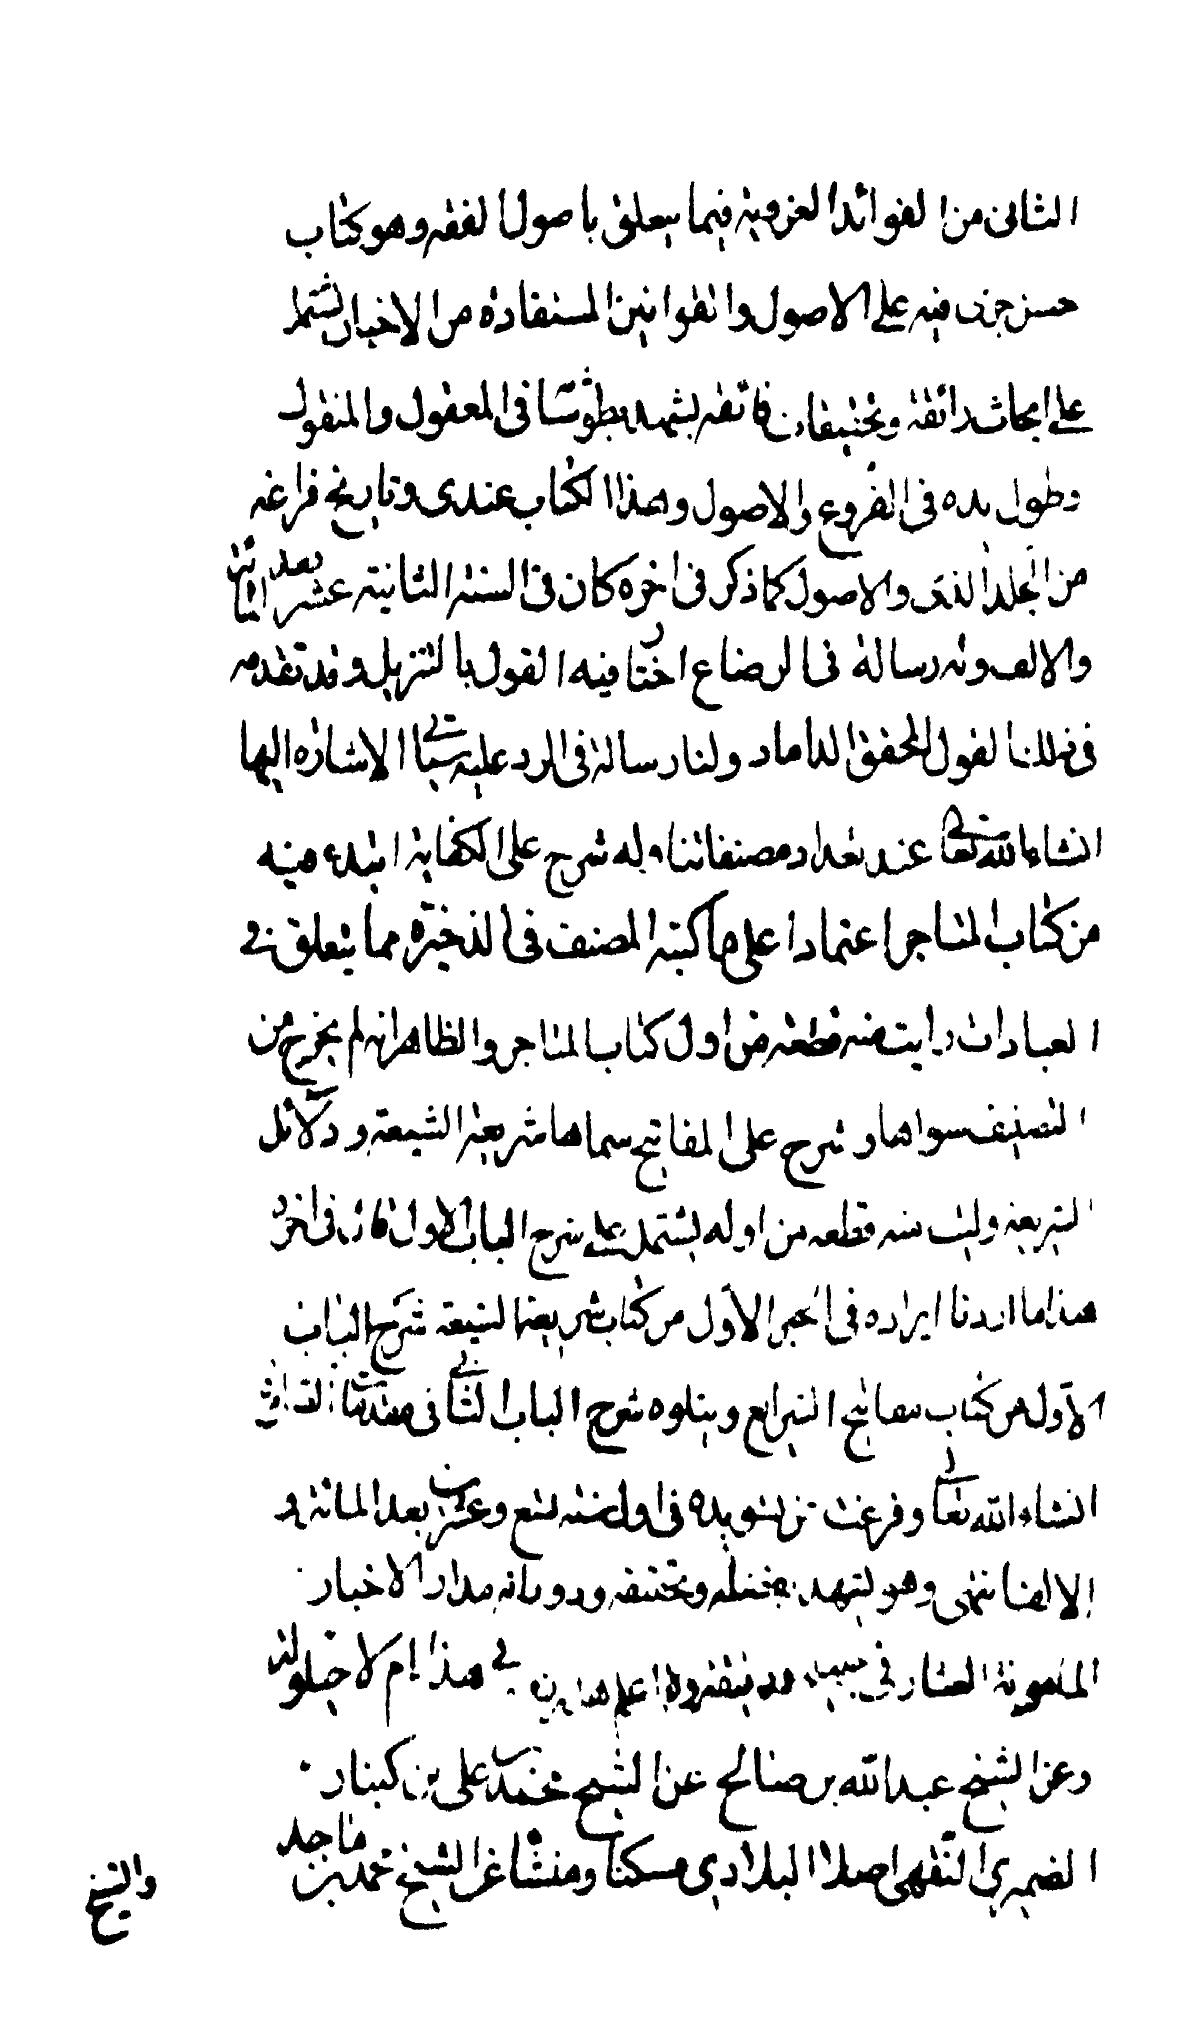 الثانى من الفوائد الغروية فيما يتعلق باصول الفقه وهو كتاب
حسن جرى فيه على الاصول والقوانين المستفادة من الاخبار يشتمل
على ابحاث رائقة وتحقيقات فائقة يشهد بطول في المعقول والمنقول
وطول يده فى الفروع والاصول وهذا الكتاب عندى وتاريخ فراغه
من المجلد الذى والاصول كما ذكر فى اخره كان فى السنة الثانية عشر بعد المائة
والالف وله رسالة فى الرضاع اختار فيه القول بالتنزيل وقد تقدمه
فى ذلك القول المحقق الداماد ولنا رسالة فى الرد عليه سيأتى الاشارة اليها
انشاء الله تعالى عند تعداد مصنفاتنا وله شرح على الكفاية ابتدء فيه
من كتاب المتاجر اعتمادا على ما كتبه المصنف فى الذخيرة مما يتعلق فى
العبادات رايت منه قطعة من اول كتاب المتاجر والظاهر انه لم يخرج من
التصنيف سواها وشرح على المفاتيح سماها شريعة الشيعة ودلائل
الشريعة وليت منه قطعه من اوله يشتمل على شرح الباب الاول قال فى اخره
هذا ما اردنا ايراده فى الجزء الاول من كتاب شريعة الشيعة شرح الباب
الاول من كتاب مفاتيح الشرايع ويتلوه شرح الباب الثانى فى مقدمات الصلوة
انشاء الله تعالى وفرغت من تسويده فى اول سنة تسع وعشرين بعد المائة و
الالف انتهى وهو يشهد بفضله وتحقيقه ودورانه مدار الاخبار
المعصومية
وعن الشيخ عبد الله بن صالح عن الشيخ محمد على بن كنبار
الضميرى النعيمى اصلا البلادى مسكنا ومنشأ عن الشيخ محمد بن ماجد
والشيخ